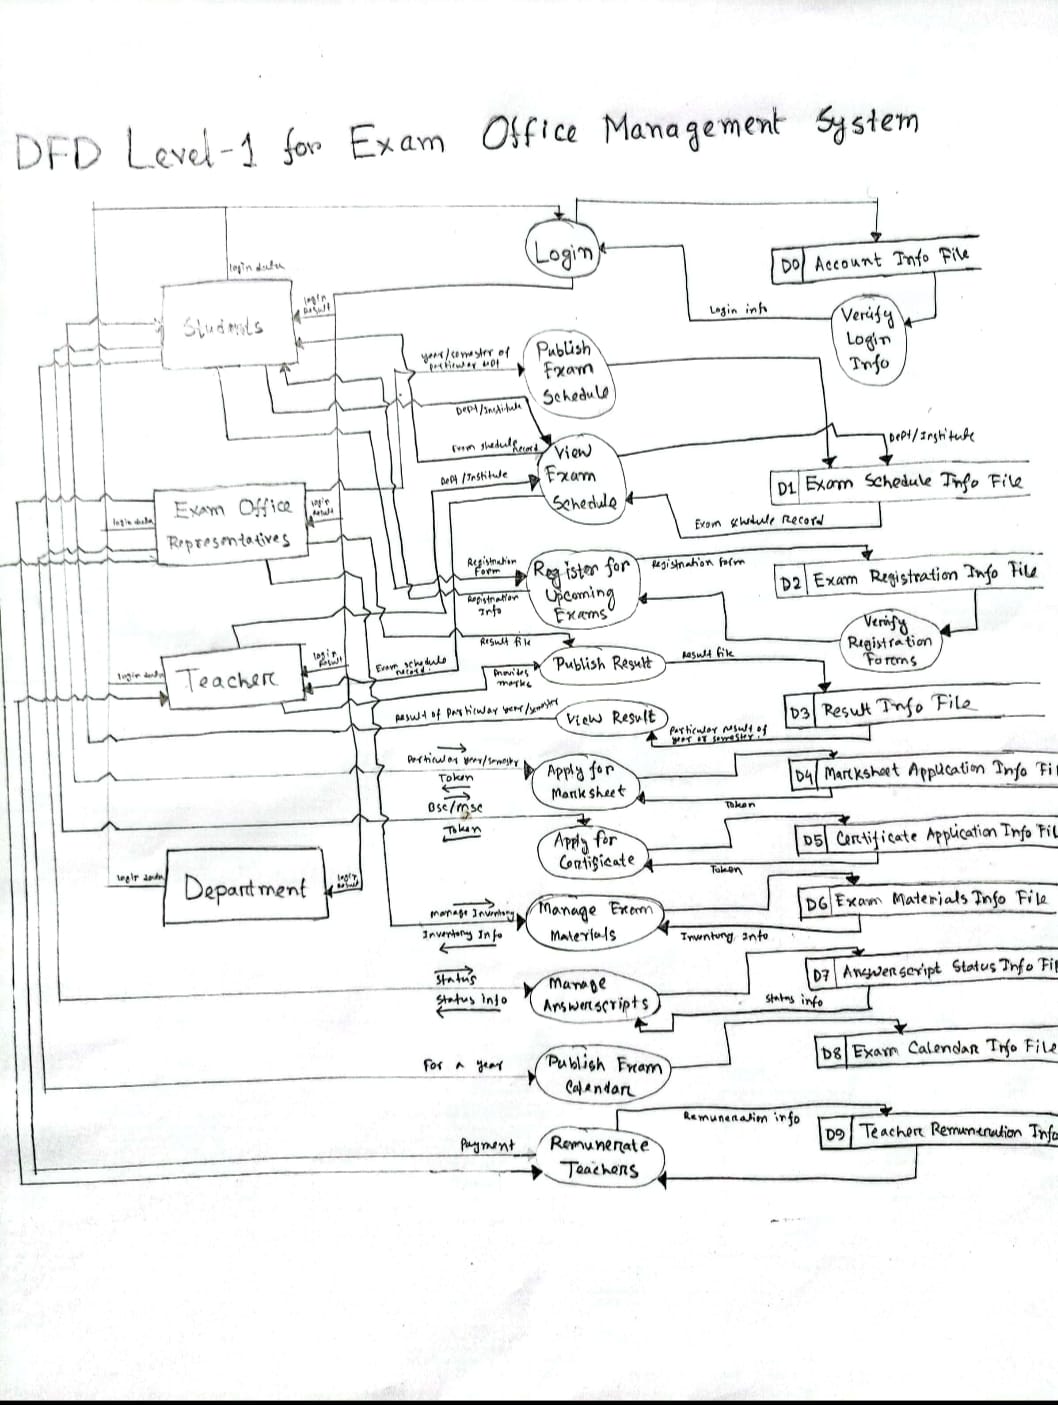 DFD Level-1 for Exam Office Management System
Login
D0 Account Info File
login data
Students
Login
Result
Login info
Verify
Login
Info
year/semester of
particular dept
Publish
Exam
Schedule
Dept/Institute
Exam shedule Record
View
Exam
Schedule
Dept/Institute
Dept/Institute
D1 Exam Schedule Info File
Exam schdule Record
Exam Office
Representatives
login data
login
Result
Registration
Form
Registration
Info
Register for
Upcoming
Exams
Registration form
D2 Exam Registration Info File
Verify
Registration
Forms
Teacher
login data
login
Result
Exam schedule
record
Result file
Provides
marks
Publish Result
Result file
D3 Result Info File
Result of Particular year/semester
View Result
Particular result of
year or semester
Particular year/semester
Token
Apply for
Marksheet
D4 Marksheet Application Info Fi
Token
Bsc/msc
Token
Apply for
Certificate
D5 Certificate Application Info Fil
Token
Department
login data
login
Result
manage Inventory
Inventory Info
Manage Exam
Materials
D6 Exam Materials Info File
Inventory Info
Status
Status Info
Manage
Answerscripts
D7 Answerscript Status Info Fi
Status info
For a year
Publish Exam
Calendar
D8 Exam Calendar Info File
Payment
Remunerate
Teachers
Remuneration info
D9 Teacher Remuneration Info